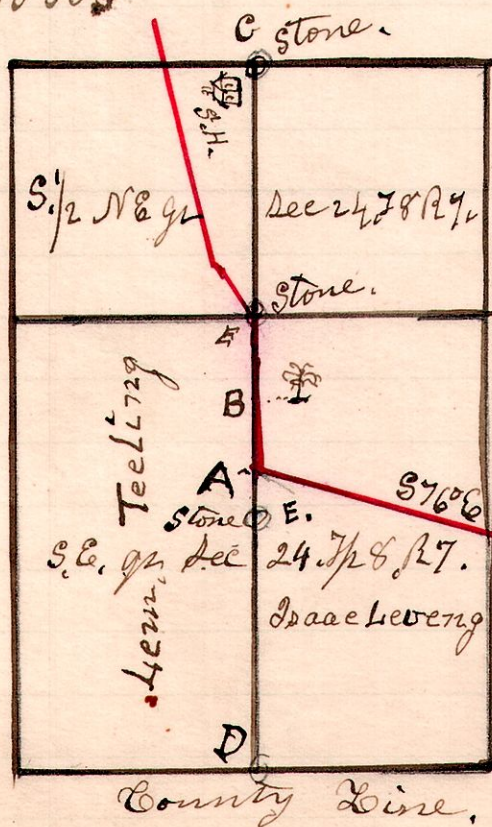 C Stone.
S.H.
S. 1/2 N E qr
Sec 24, T 8 R 7.
Stone.
E
B
A
S 76° E
Stone E.
S. E. qr Sec 24. Tp 8, R 7.
Isaac Leveng
Lem. Teeling
D
County Line.